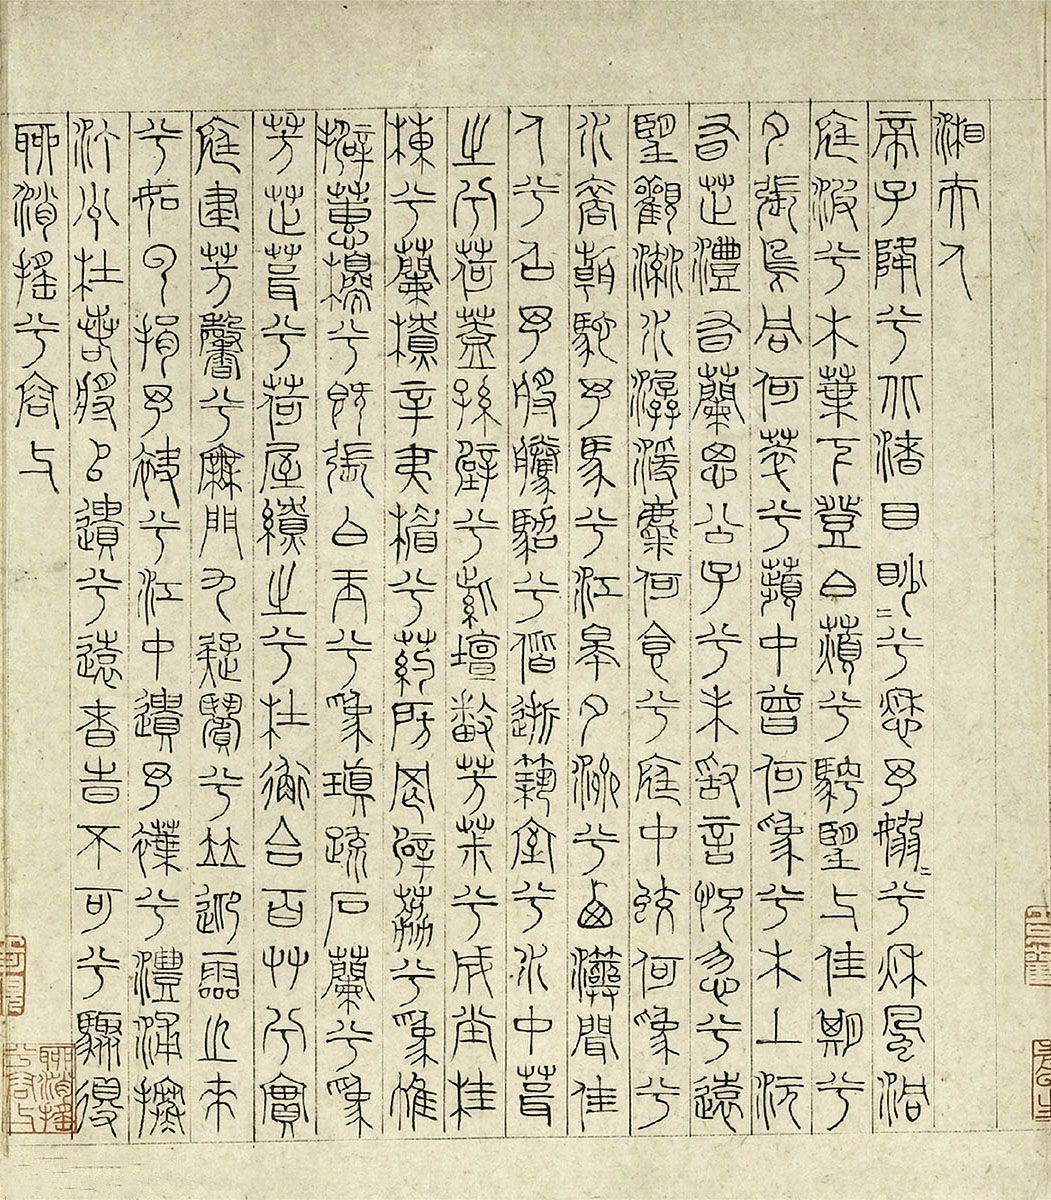 湘夫人
帝子降兮北渚目眇〻兮愁予嫋〻兮秋風洞
庭波兮木葉下登白薠兮騁望与佳期兮
夕張鳥何萃兮蘋中罾何為兮木上沅
有芷澧有蘭思公子兮未敢言怳忽兮遠
望觀流水潺湲麋何食兮庭中蛟何為兮
水裔朝馳予馬兮江皋夕濟兮西澨聞佳
人兮召予將騰駕兮偕逝築室兮水中葺
之兮荷蓋蓀壁兮紫壇播芳椒兮成堂桂
棟兮蘭橑辛夷楣兮葯房罔薜荔兮為帷
擗蕙櫋兮既張白玉兮為瑱疏石蘭兮為
芳芷葺兮荷屋繚之兮杜衡合百草兮實
庭建芳馨兮廡門九疑繽兮並迎靈之來
兮如雲捐予袂兮江中遺予褋兮澧浦搴
汀洲杜若將以遺兮遠者時不可兮驟得
聊逍搖兮容与
聊逍搖兮容与